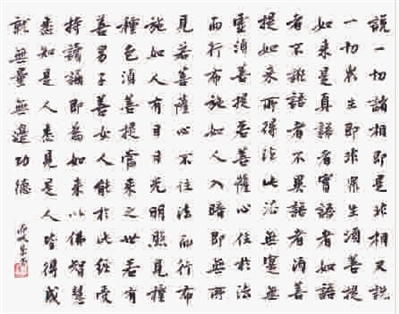 說一切諸相即是非相又說
一切衆生即非衆生須菩提
如來是真語者實語者如語
者不誑語者不異語者須菩
提如來所得法此法無實無
虛須菩提若菩薩心住於法
而行布施如人入暗即無所
見若菩薩心不住法而行布
施如人有目日光明照見種
種色須菩提當來之世若有
善男子善女人能於此經受
持讀誦即為如來以佛智慧
悉知是人悉見是人皆得成
就無量無邊功德